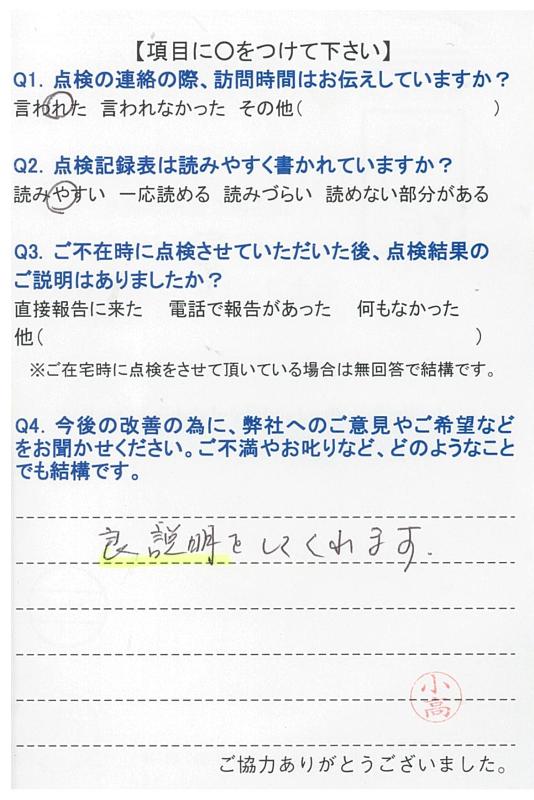 【項目に〇をつけて下さい】
Q1. 点検の連絡の際、訪問時間はお伝えしていますか？
言われた 言われなかった その他( )
Q2. 点検記録表は読みやすく書かれていますか？
読みやすい 一応読める 読みづらい 読めない部分がある
Q3. ご不在時に点検させていただいた後、点検結果の
ご説明はありましたか？
直接報告に来た 電話で報告があった 何もなかった
他( )
※ご在宅時に点検をさせて頂いている場合は無回答で結構です。
Q4. 今後の改善の為に、弊社へのご意見やご希望など
をお聞かせください。ご不満やお叱りなど、どのようなこと
でも結構です。
良説明をしてくれます.
小高
ご協力ありがとうございました。